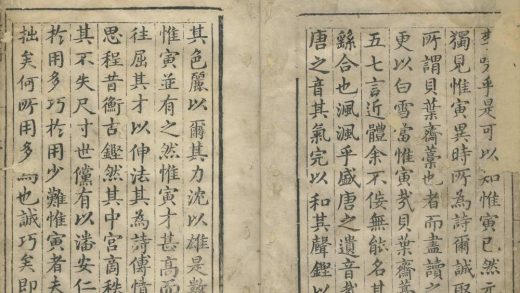 乎是可以知惟寅已然元
獨見惟寅異時所為詩爾誠取
所謂貝葉齋藁也者而盡讀之
更以白雪當惟寅哉貝葉齋藁
五七言近體余不佞無能名其
繇合也渢渢乎盛唐之遺音哉
唐之音其氣完以和其聲鏗以
其色麗以爾其力沈以雄是數
惟寅並有之然惟寅才甚高而
往屈其才以伸法其為詩傳情
思程昔衡古鏗然其中宮商秩
其不失尺寸世儻有以潘安仁
於用多巧於用少難惟寅者夫
拙矣何所用多為也誠巧矣即